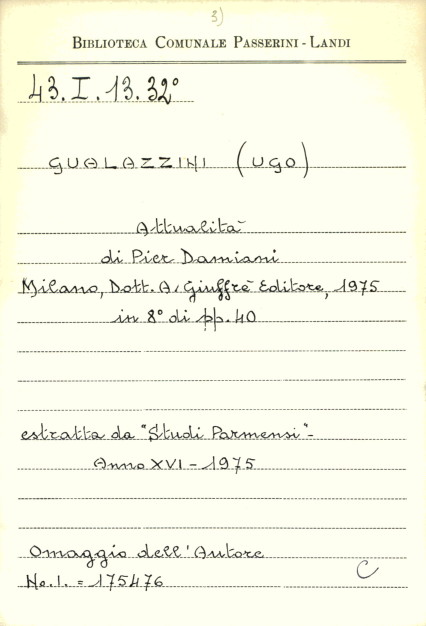 3)
BIBLIOTECA COMUNALE PASSERINI - LANDI
43. I. 13. 32°
GUALAZZINI (UGO)
Attualità
di Pier Damiani
Milano, Dott. A. Giuffrè Editore, 1975
in 8° di pp. 40
estratta da "Studi Parmensi" -
Anno XVI - 1975
Omaggio dell'Autore
No. I. = 175476
C